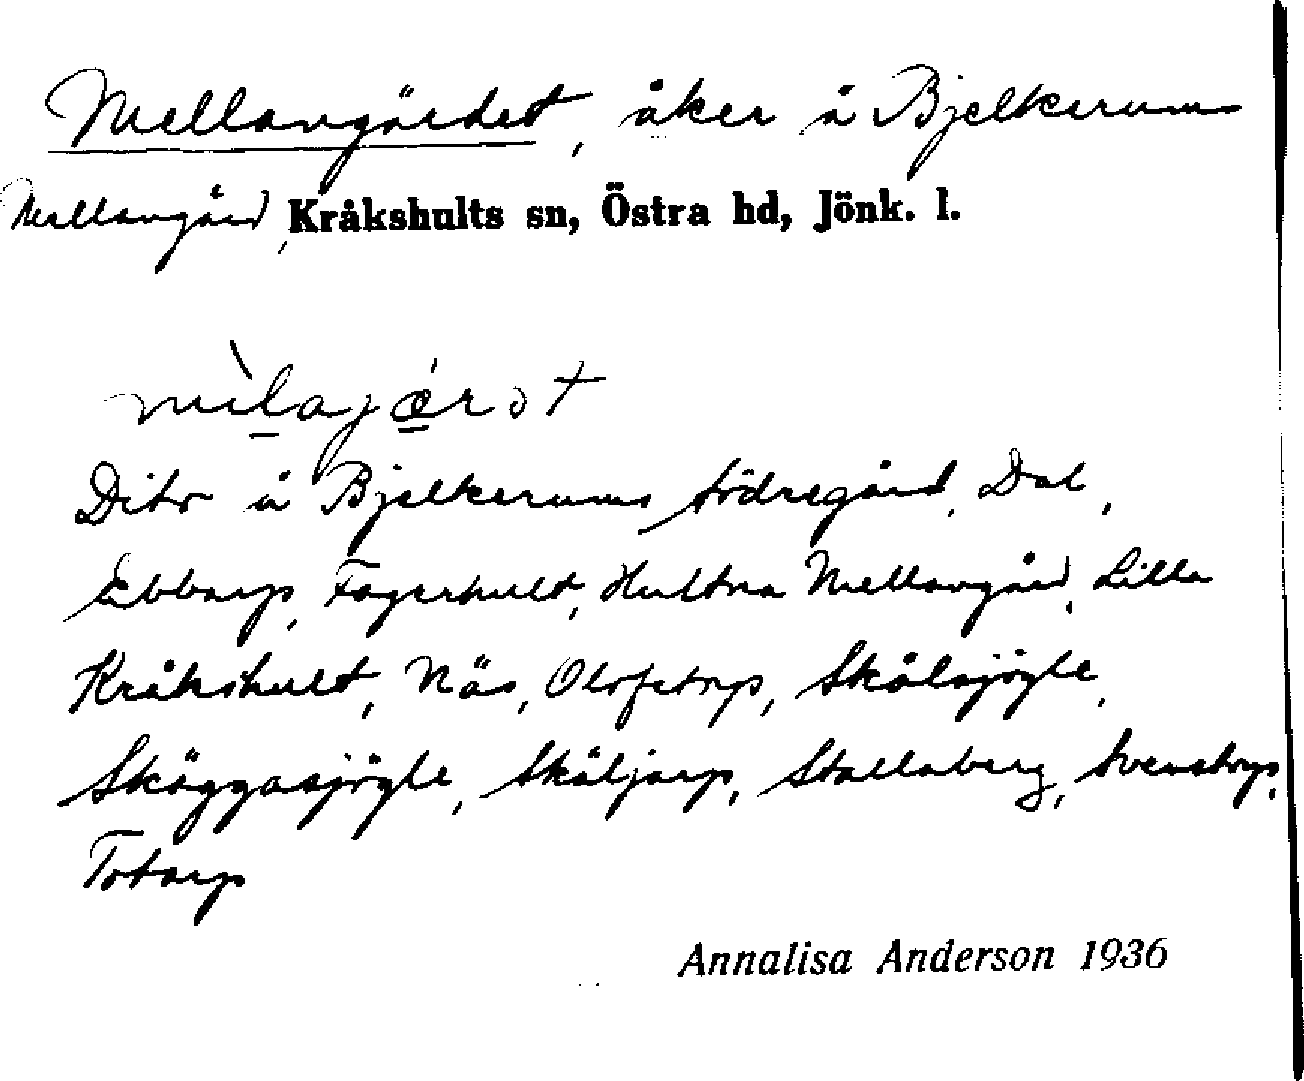 Mellangärdet, åker å Bjelkerums
Mellangård, Kråkshults sn, Östra hd, Jönk. l.
mìlajǽrət
Dito å Bjelkerums södregård, Dal,
Ebbarp, Fagerhult, Hultna Mellangård, Lilla
Kråkshult, Näs, Olofstorp, Skålsjögle,
Skäggasjögle, Skäljarp, Stallaberg, Svenstorp,
Totarp
Annalisa Anderson 1936